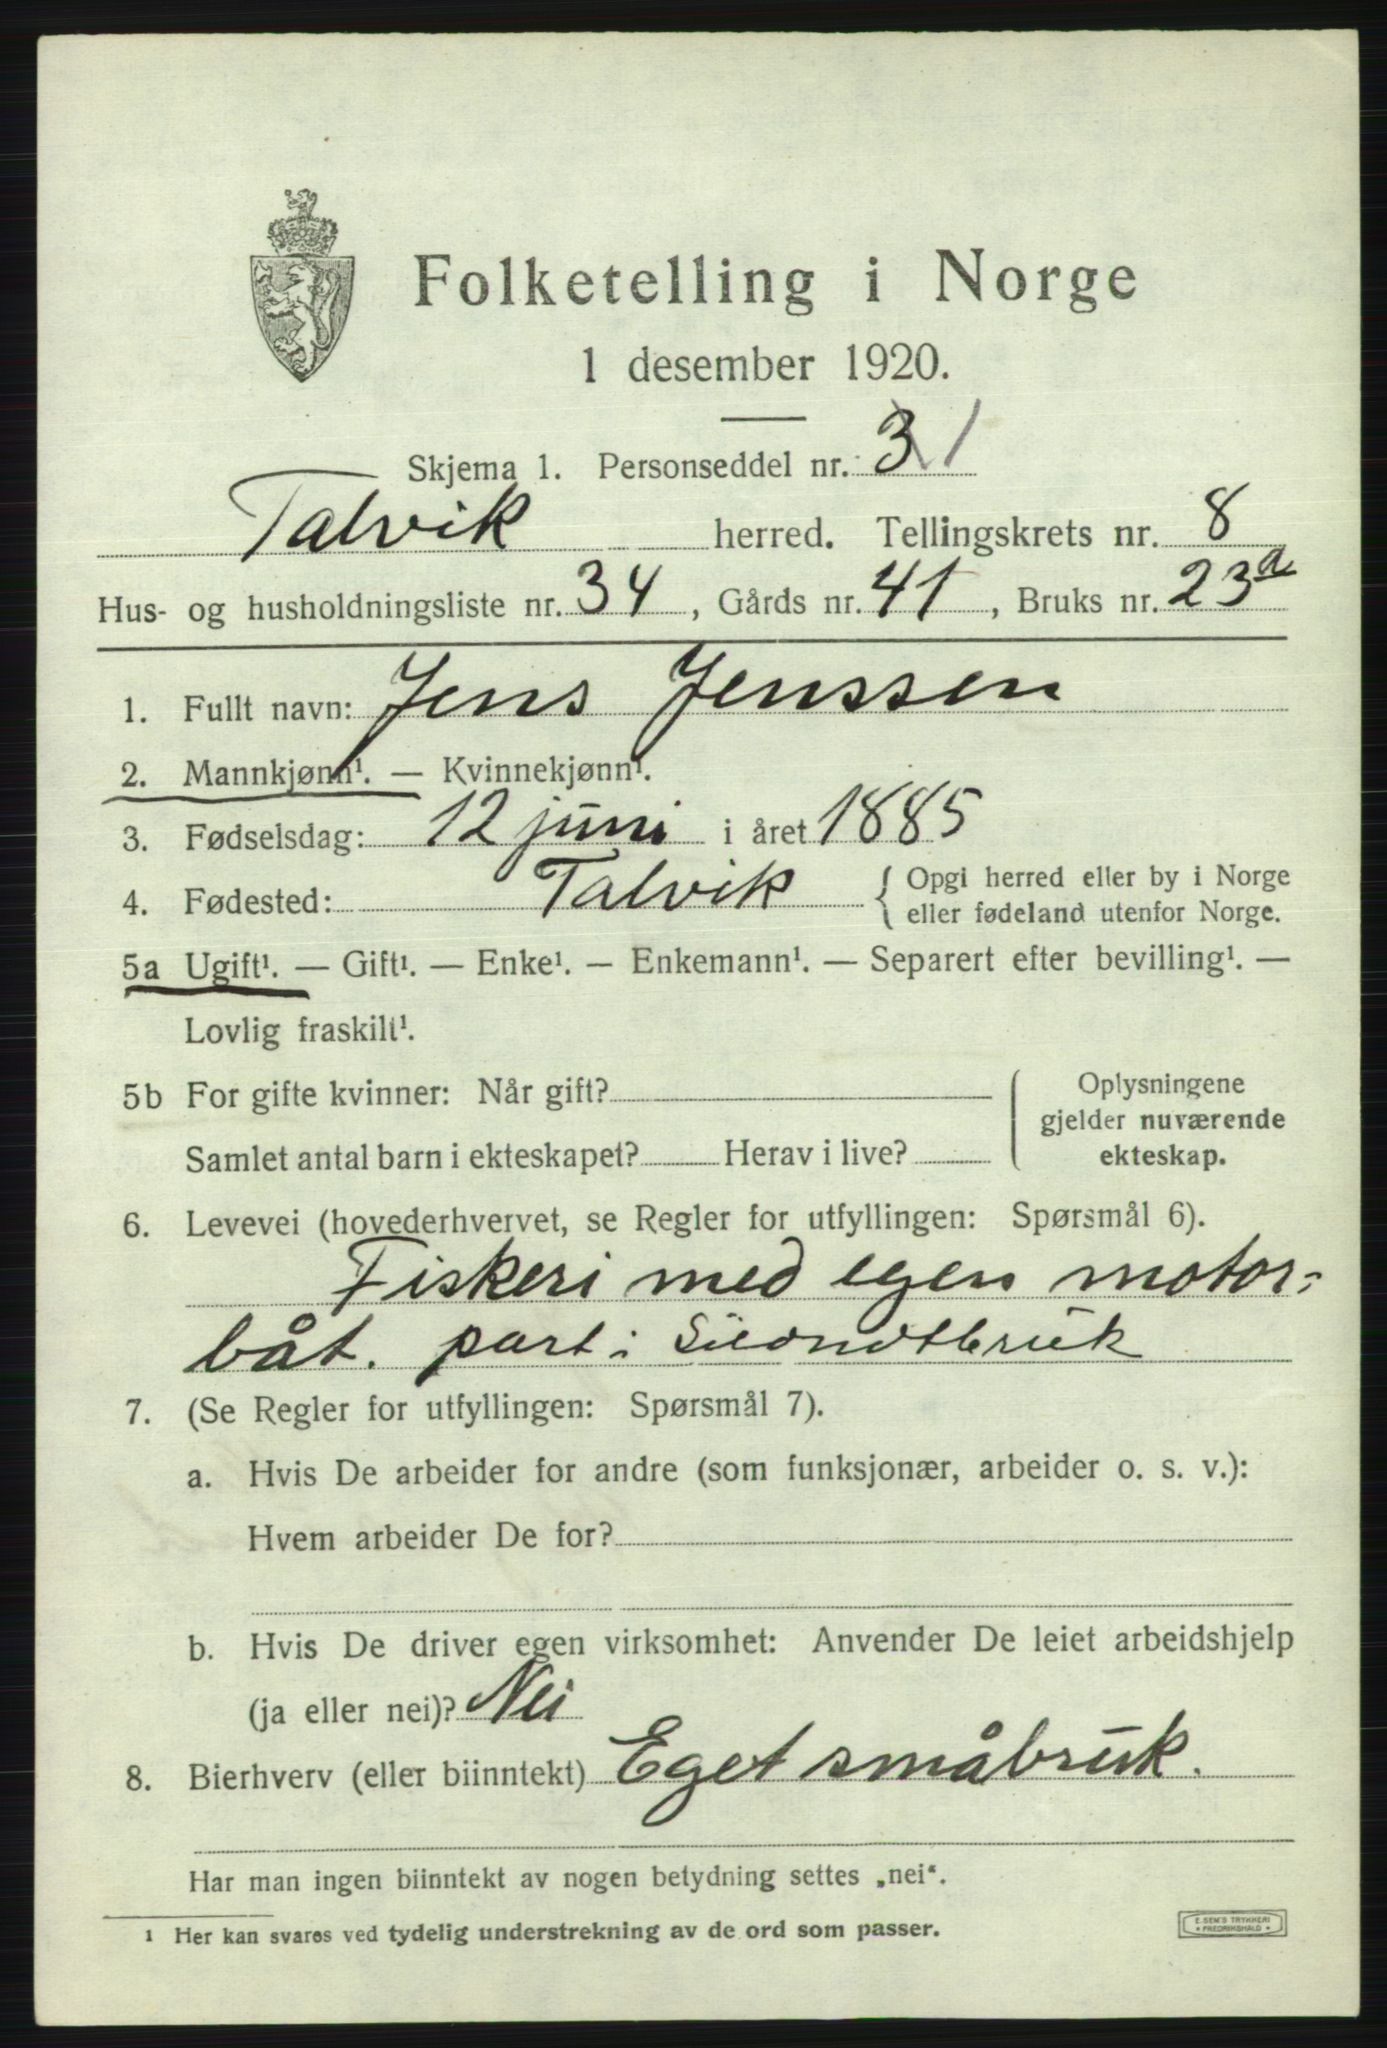 Folketelling i Norge
1 desember 1920.
Skjema 1. Personseddel nr. 3 1
Talvik herred. Tellingskrets nr. 8
Hus- og husholdningsliste nr. 34, Gårds nr. 41, Bruks nr. 23a
1. Fullt navn: Jens Jenssen
2. Mannkjønn¹. — Kvinnekjønn¹.
3. Fødselsdag: 12 juni i året 1885
4. Fødested: Talvik { Opgi herred eller by i Norge
eller fødeland utenfor Norge.
5a Ugift¹. — Gift¹. — Enke¹. — Enkemann¹. — Separert efter bevilling¹. —
Lovlig fraskilt¹.
5b For gifte kvinner: Når gift?
Samlet antal barn i ekteskapet? Herav i live?
Oplysningene
gjelder nuværende
ekteskap.
6. Levevei (hovederhvervet, se Regler for utfyllingen: Spørsmål 6).
Fiskeri med egen motor-
båt. part i
7. (Se Regler for utfyllingen: Spørsmål 7).
a. Hvis De arbeider for andre (som funksjonær, arbeider o. s. v.):
Hvem arbeider De for?
b. Hvis De driver egen virksomhet: Anvender De leiet arbeidshjelp
(ja eller nei)? Nei
8. Bierhverv (eller biinntekt) Eget småbruk.
Har man ingen biinntekt av nogen betydning settes „nei“.
1 Her kan svares ved tydelig understrekning av de ord som passer.
E. SEM'S TRYKKERI
• FREDRIKSHALD •